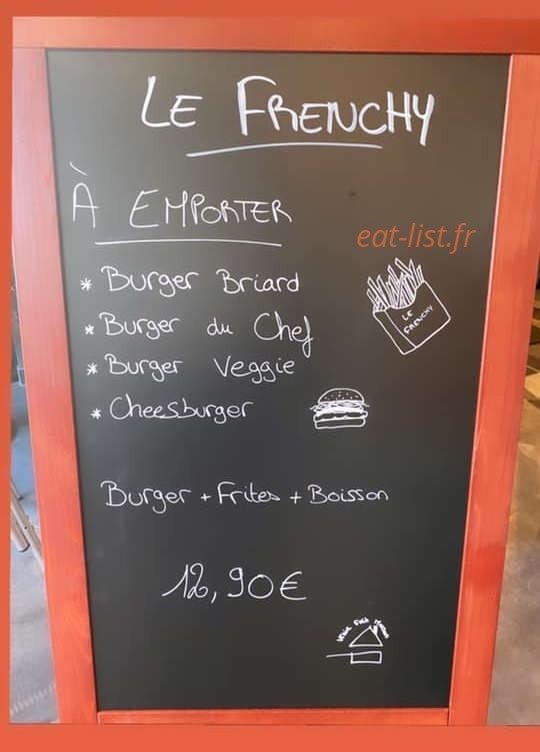 LE FRENCHY
À EMPORTER
eat-list.fr
* Burger Briard
* Burger du Chef
* Burger Veggie
* Cheesburger
LE
FRENCHY
Burger + Frites + Boisson
12,90€